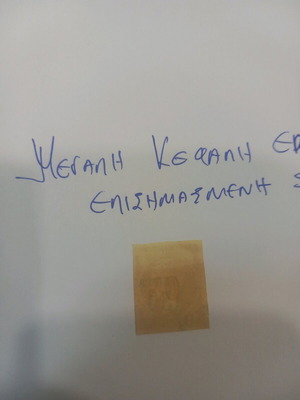 ΜΕΓΑΛΗ ΚΕΦΑΛΗ
ΕΠΙΣΗΜΑΣΜΕΝΗ